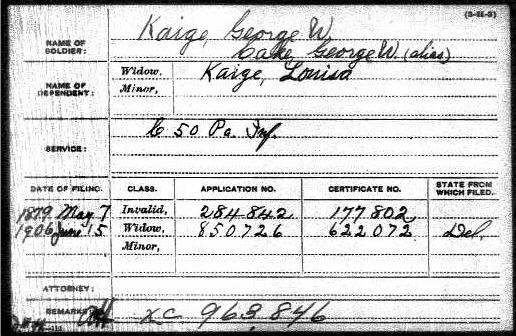 (3-H-3)
Kaige, George W.
NAME OF SOLDIER:
Cake, George W (alias)
NAME OF DEPENDENT:
Widow, Kaige, Louisa
Minor,
SERVICE:
C 50 Pa. Inf.
DATE OF FILING. CLASS. APPLICATION NO. CERTIFICATE NO. STATE FROM WHICH FILED.
1879 May 7 Invalid, 284842 177802
1906 June 15 Widow, 850726 622072 Del.
Minor,
ATTORNEY:
REMARKS: XC 963846